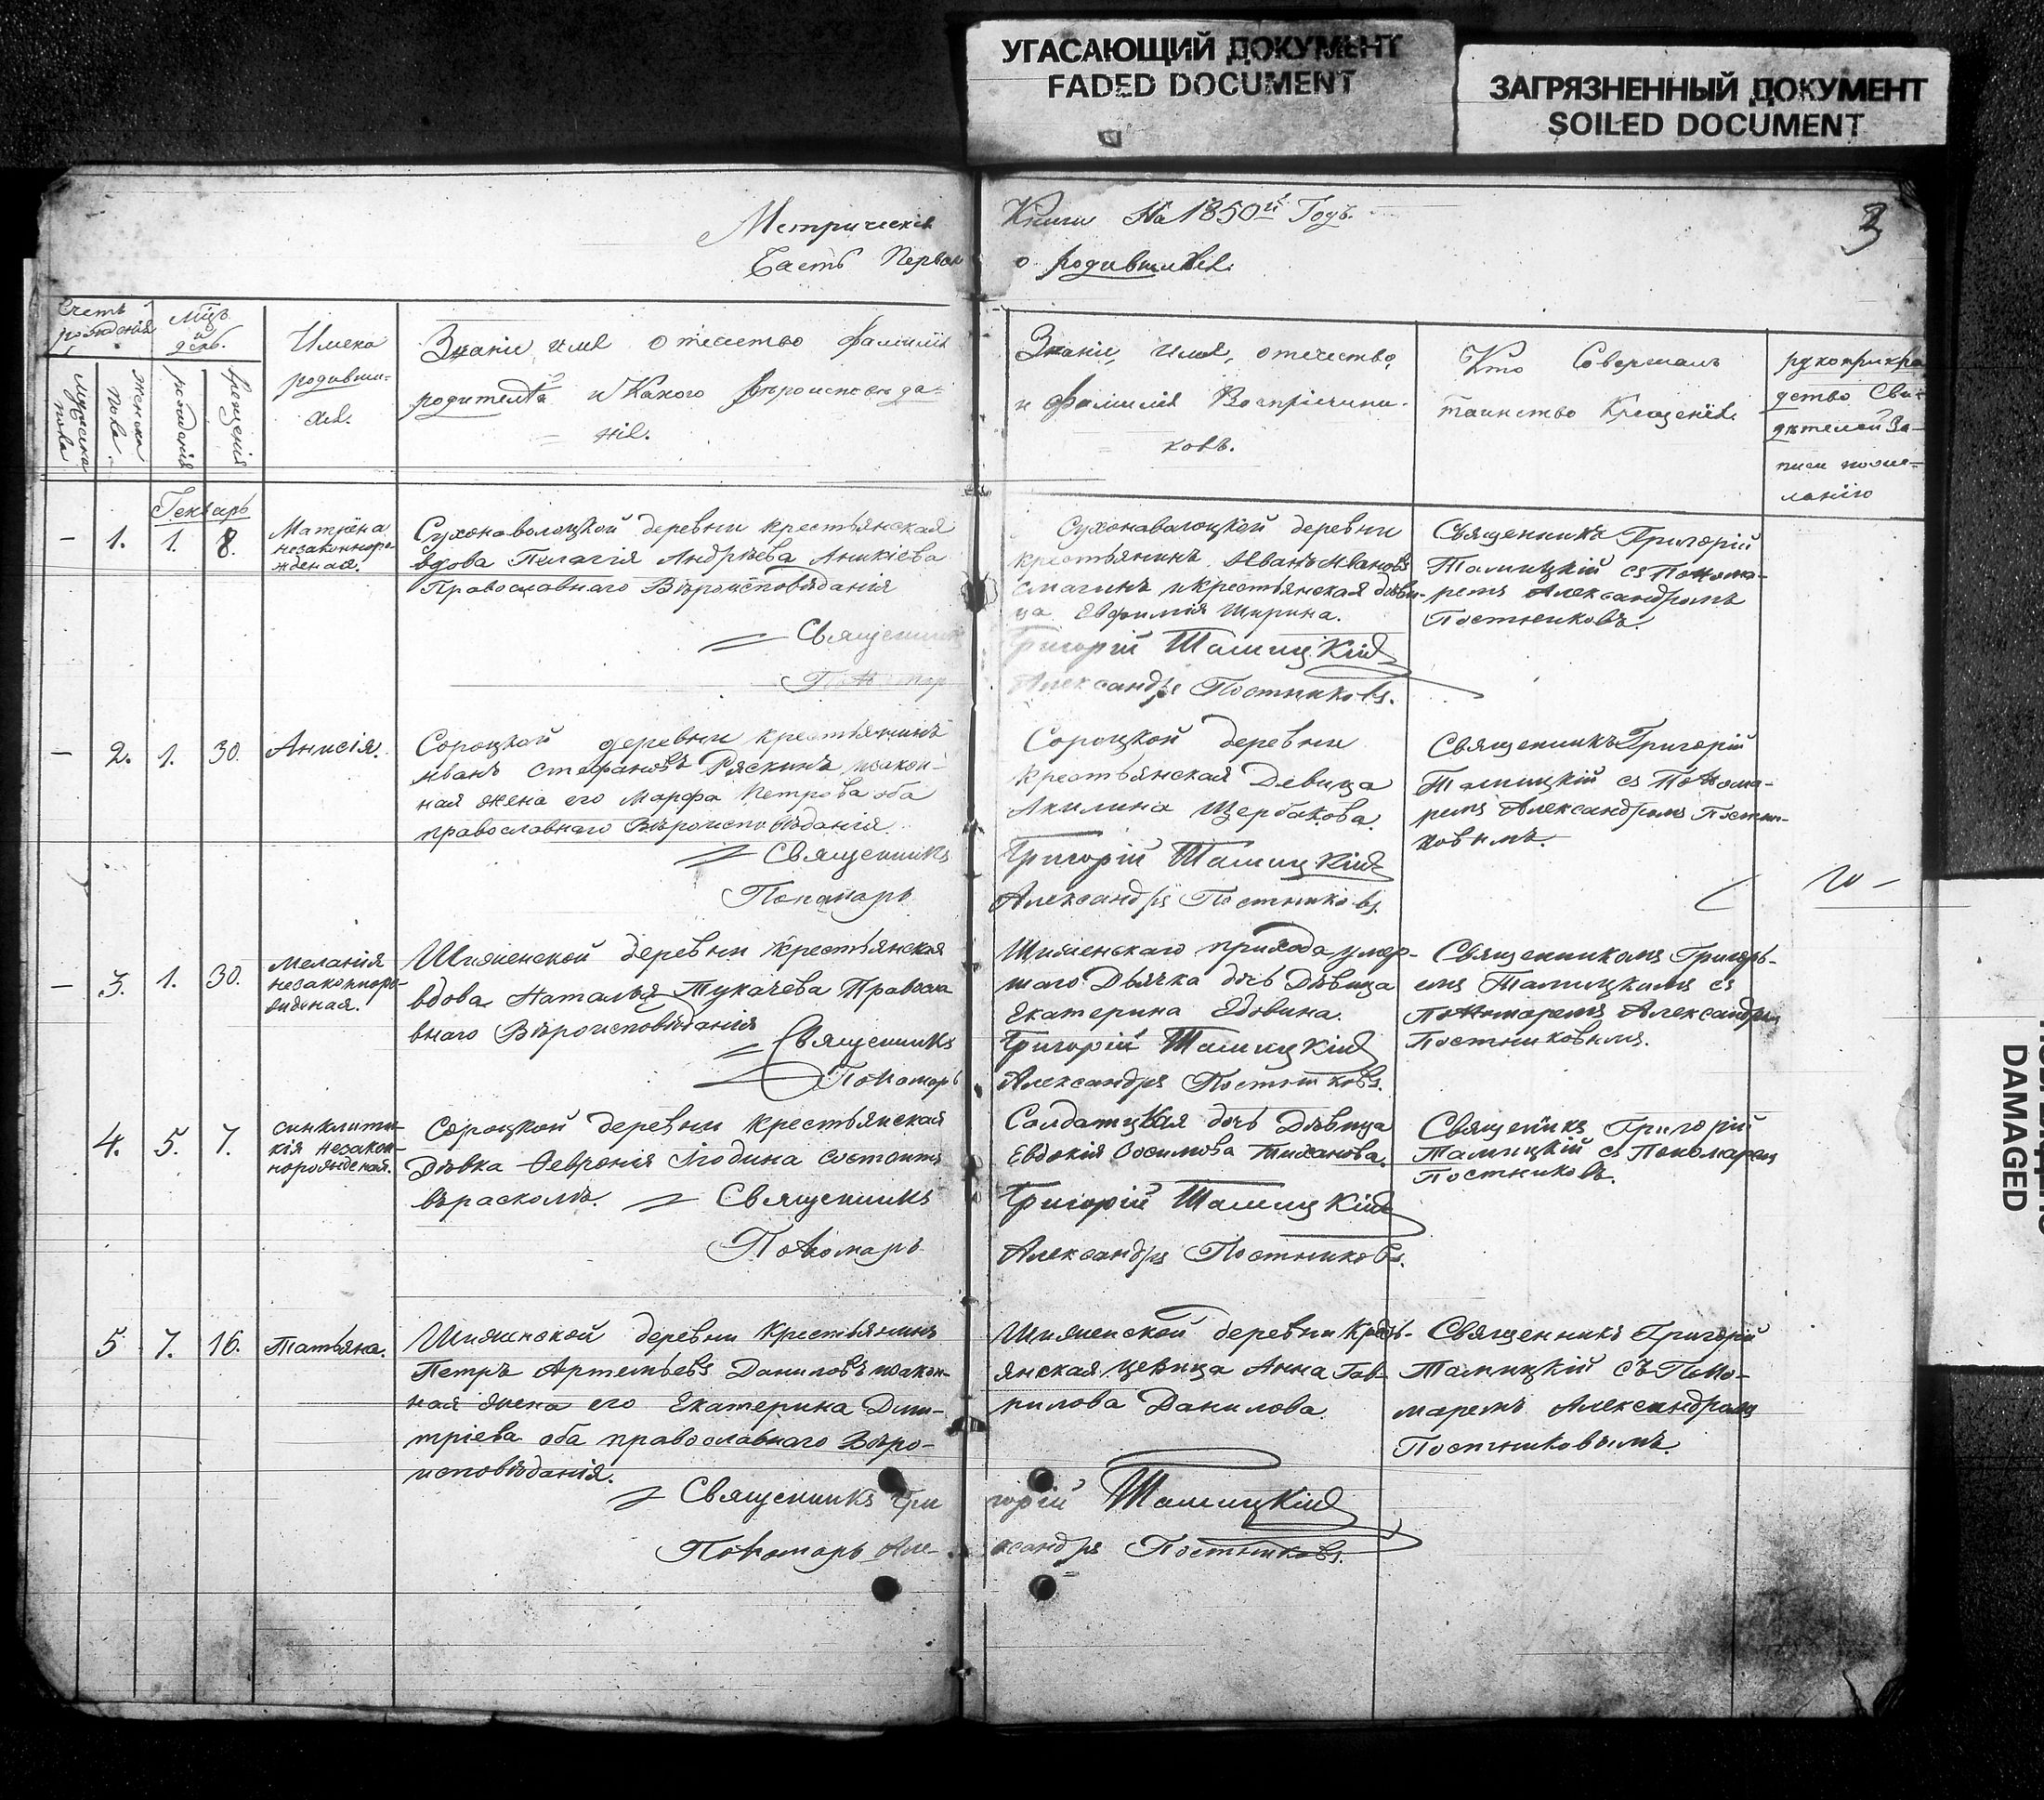 УГАСАЮЩИЙ ДОКУМЕНТ
FADED DOCUMENT
ЗАГРЯЗНЕННЫЙ ДОКУМЕНТ
SOILED DOCUMENT
DAMAGED
3
Метрическія Книги На 1850й Годъ.
Часть Первая о родившихся.
Счетъ рожденія
Мужеска пола
Женска пола
Мцъ и день
рожденія
крещенія
Имена
родивши-
хся.
Званіе, имя отечество фамилія
родителей и Какого Вѣроисповѣда-
нія.
Званіе, имя, отечество,
и фамилія Воспріемни-
ковъ.
Кто Совершалъ
таинство Крещенія.
рукоприкла
дство Сви-
дѣтелей За-
писи по же-
ланію
Генварь
– 1. 1. 8.
Матрёна
незаконноро-
жденая.
Сухонаволоцкой деревни крестьянская
вдова Пелагія Андрѣева Аникіева
Православнаго Вѣроисповѣданія
Сухонаволоцкой деревни
крестьянинъ Иванъ Ивановъ
Смагинъ и крестьянская дѣви-
ца Евфимія Ширина.
Священникъ Григорій
Тамицкій съ Понома-
ремъ Александромъ
Постниковъ.
Священникъ Григорій Тамицкій
Пономарь Александръ Постниковъ.
– 2. 1. 30.
Анисія.
Сороцкой деревни крестьянинъ
Иванъ Стефановъ Ряскинъ и закон-
ная жена его Марфа Петрова оба
православнаго Вѣроисповѣданія.
Сороцкой деревни
крестьянская Девица
Акилина Щербакова.
Священникъ Григорій
Тамицкій съ Понома-
ремъ Александромъ Постни-
ковымъ.
Священникъ Григорій Тамицкій
Пономарь Александръ Постниковъ.
– 3. 1. 30.
Меланія
незаконноро-
жденая.
Шиженской деревни крестьянская
вдова Наталья Тукачева Правосла
внаго Вѣроисповѣданія
Шиженскаго прихода умер-
шаго Дьячка дочь Дѣвица
Екатерина Едовина.
Священникомъ Григорь-
емъ Тамицкимъ съ
Пономаремъ Александромъ
Постниковымъ.
Священникъ Григорій Тамицкій
Пономарь Александръ Постниковъ.
4. 5. 7.
Синклити-
кія незакон-
норожденая.
Сороцкой деревни крестьянская
Дѣвка Февронія Ягодина состоитъ
въ расколѣ.
Солдатская дочь Дѣвица
Евдокія Зосимова Тиханова.
Священикъ Григорій
Тамицкій съ Пономаремъ
Постниковъ.
Священникъ Григорій Тамицкій
Пономарь Александръ Постниковъ.
5 7. 16.
Татьяна.
Шиженской деревни Крестьянинъ
Петръ Артемьевъ Даниловъ и закон-
ная жена его Екатерина Дми-
тріева оба православнаго Вѣро-
исповѣданія.
Шиженской деревни Кресть-
янская девица Анна Гав-
рилова Данилова.
Священникъ Григорій
Тамицкій съ Поно-
маремъ Александромъ
Постниковымъ.
Священникъ Григорій Тамицкій
Пономарь Александръ Постниковъ.